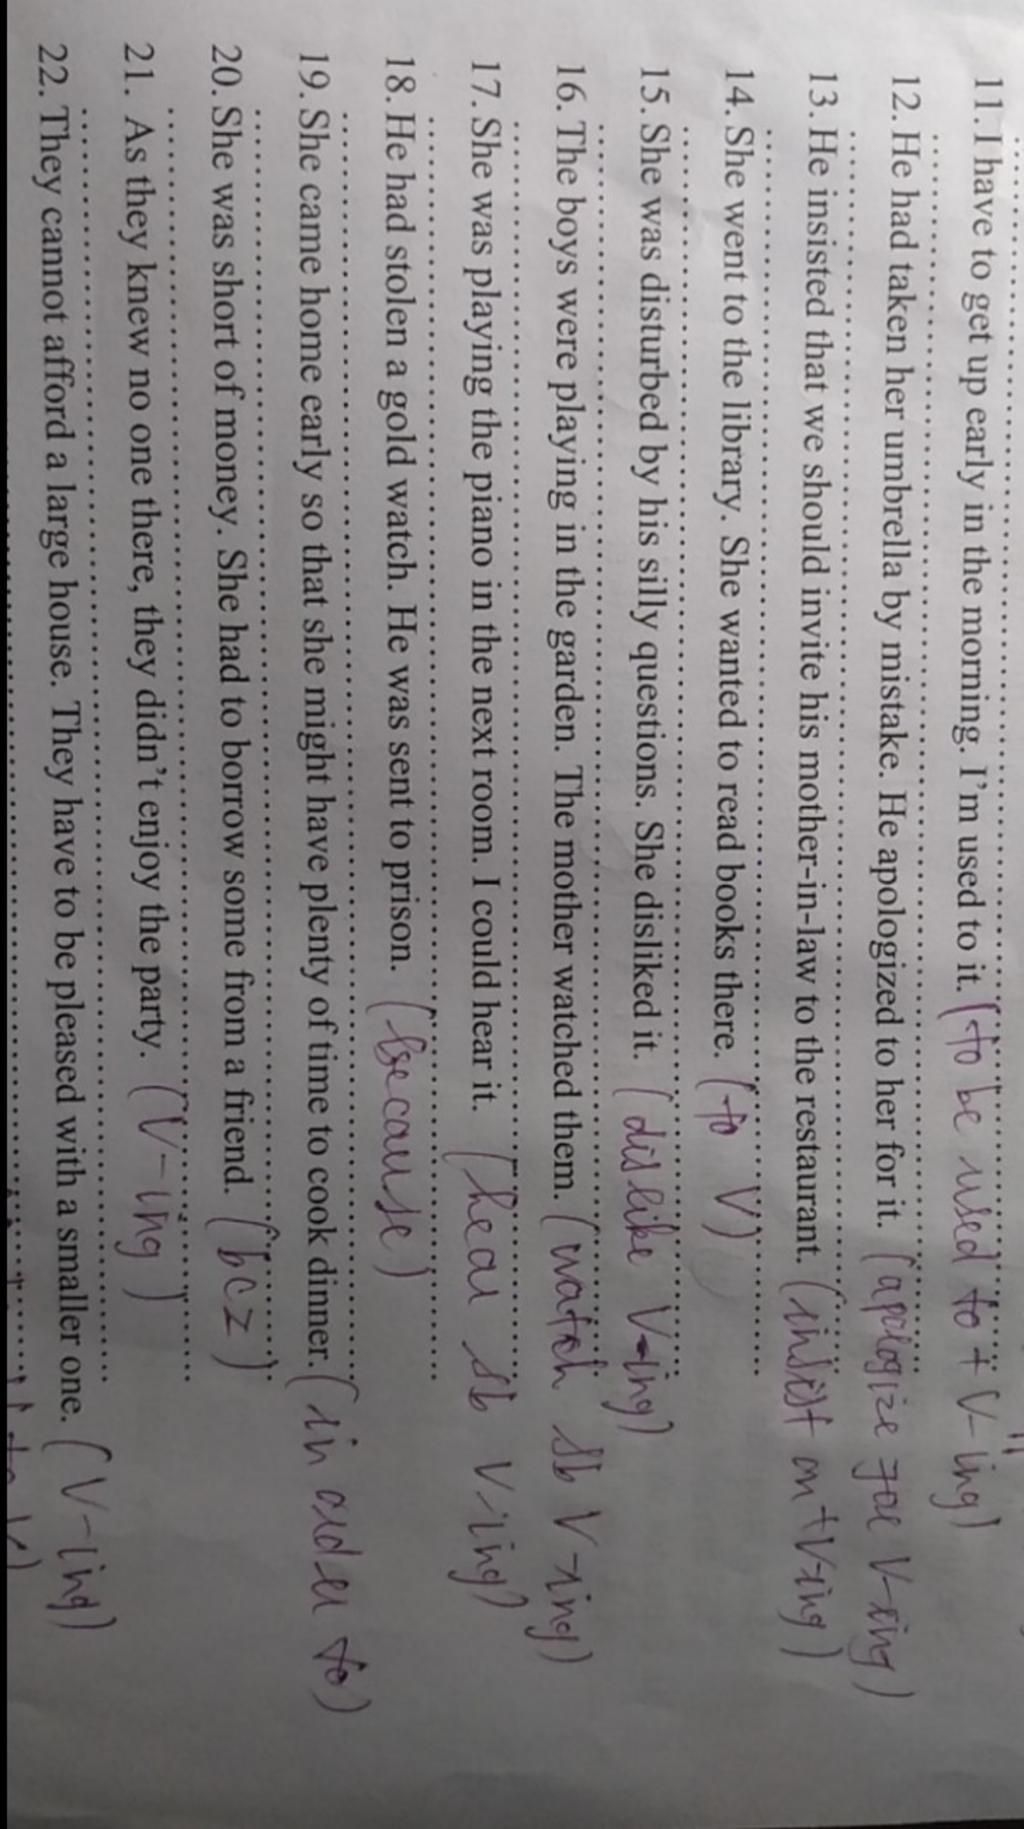 11. I have to get up early in the morning. I'm used to it. (to be used to + V-ing)
12. He had taken her umbrella by mistake. He apologized to her for it. (apologize for V-ing)
13. He insisted that we should invite his mother-in-law to the restaurant. (insist on + V-ing)
14. She went to the library. She wanted to read books there. (to V)
15. She was disturbed by his silly questions. She disliked it. (dislike V-ing)
16. The boys were playing in the garden. The mother watched them. (watch sb V-ing)
17. She was playing the piano in the next room. I could hear it. (hear sb V-ing)
18. He had stolen a gold watch. He was sent to prison. (because)
19. She came home early so that she might have plenty of time to cook dinner. (in order to)
20. She was short of money. She had to borrow some from a friend. (bcz)
21. As they knew no one there, they didn't enjoy the party. (V-ing)
22. They cannot afford a large house. They have to be pleased with a smaller one. (V-ing)